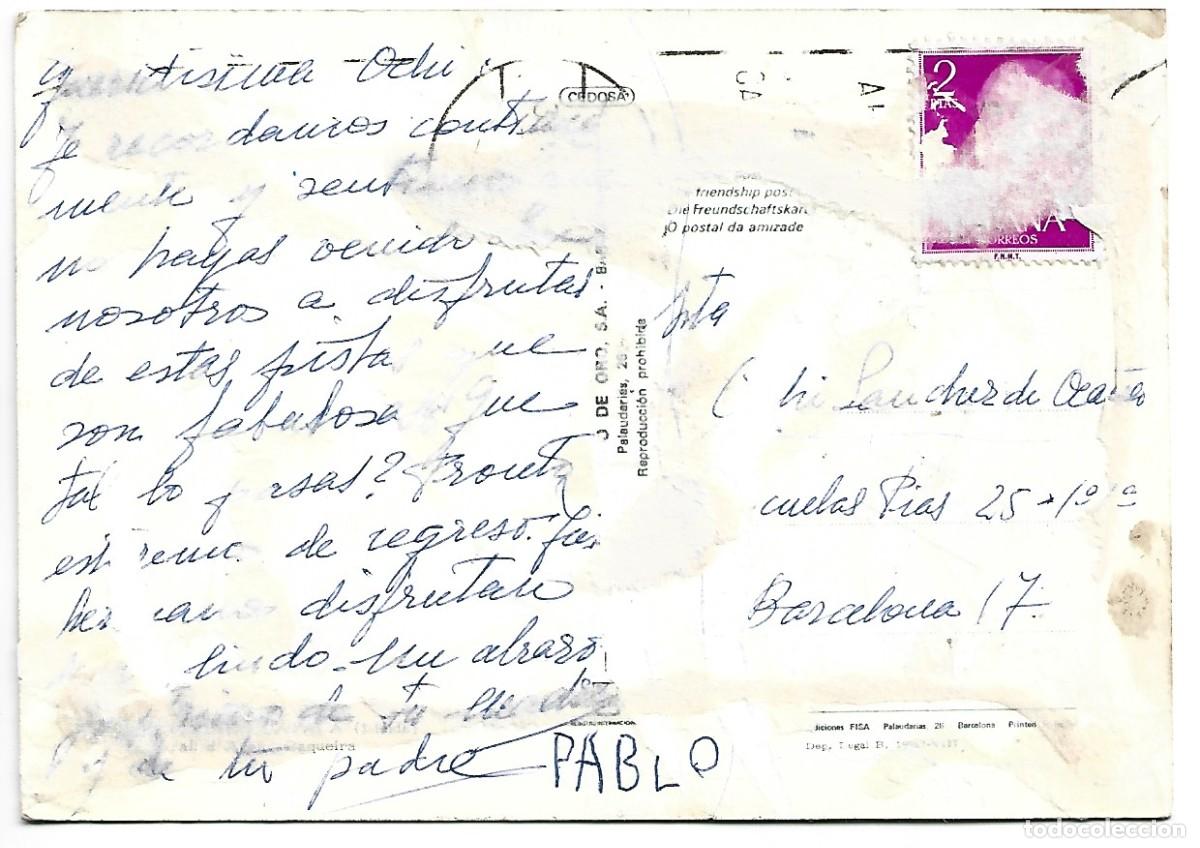 Ochi
Te recordamos
mente y sentimos
no hayas venido
nosotros a disfrutar
de estas pistas que
son fabulosas que
tal lo pasas? Pronto
estaremos de regreso. Tus
hermanos disfrutan
lindo. Un abrazo
de tu madre
y de tu padre
PABLO
CEDOSA
CA
2
PTAS
CORREOS
F.N.M.T.
friendship post
Die Freundschaftskart
O postal da amizade
O DE ORO, S.A. - BA
Palaudarias, 26
Reproducción prohibida
Srta
chi Sanchez de Ocaña
cuelas Pias 25 - 1º 1ª
Barcelona 17
diciones FISA Palaudarias 26 Barcelona Printed
Dep. Legal B.
aqueira
todocoleccion